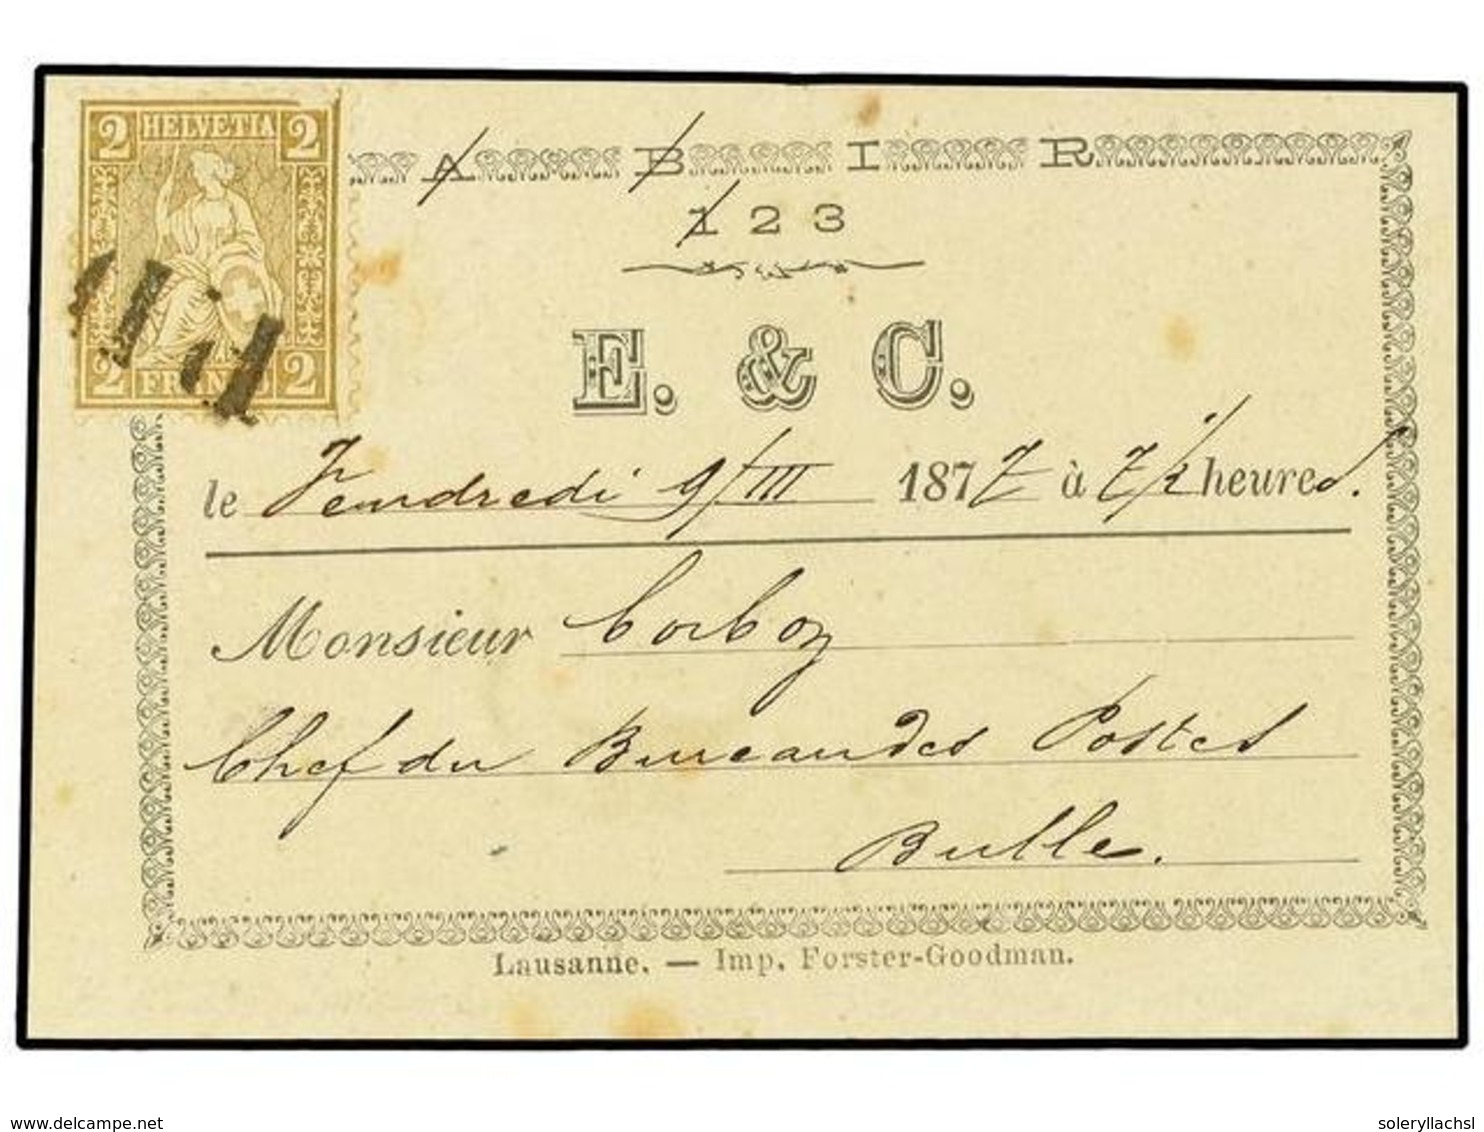 2 HELVETIA 2
2 FRANC 2
A B I R
1 2 3
E. & C.
le Vendredi 9/III 1877 à 7 1/2 heures.
Monsieur Corboz
Chef du Bureau des Postes
Bulle.
Lausanne. — Imp. Forster-Goodman.
www.delcampe.net
soleryllachsl